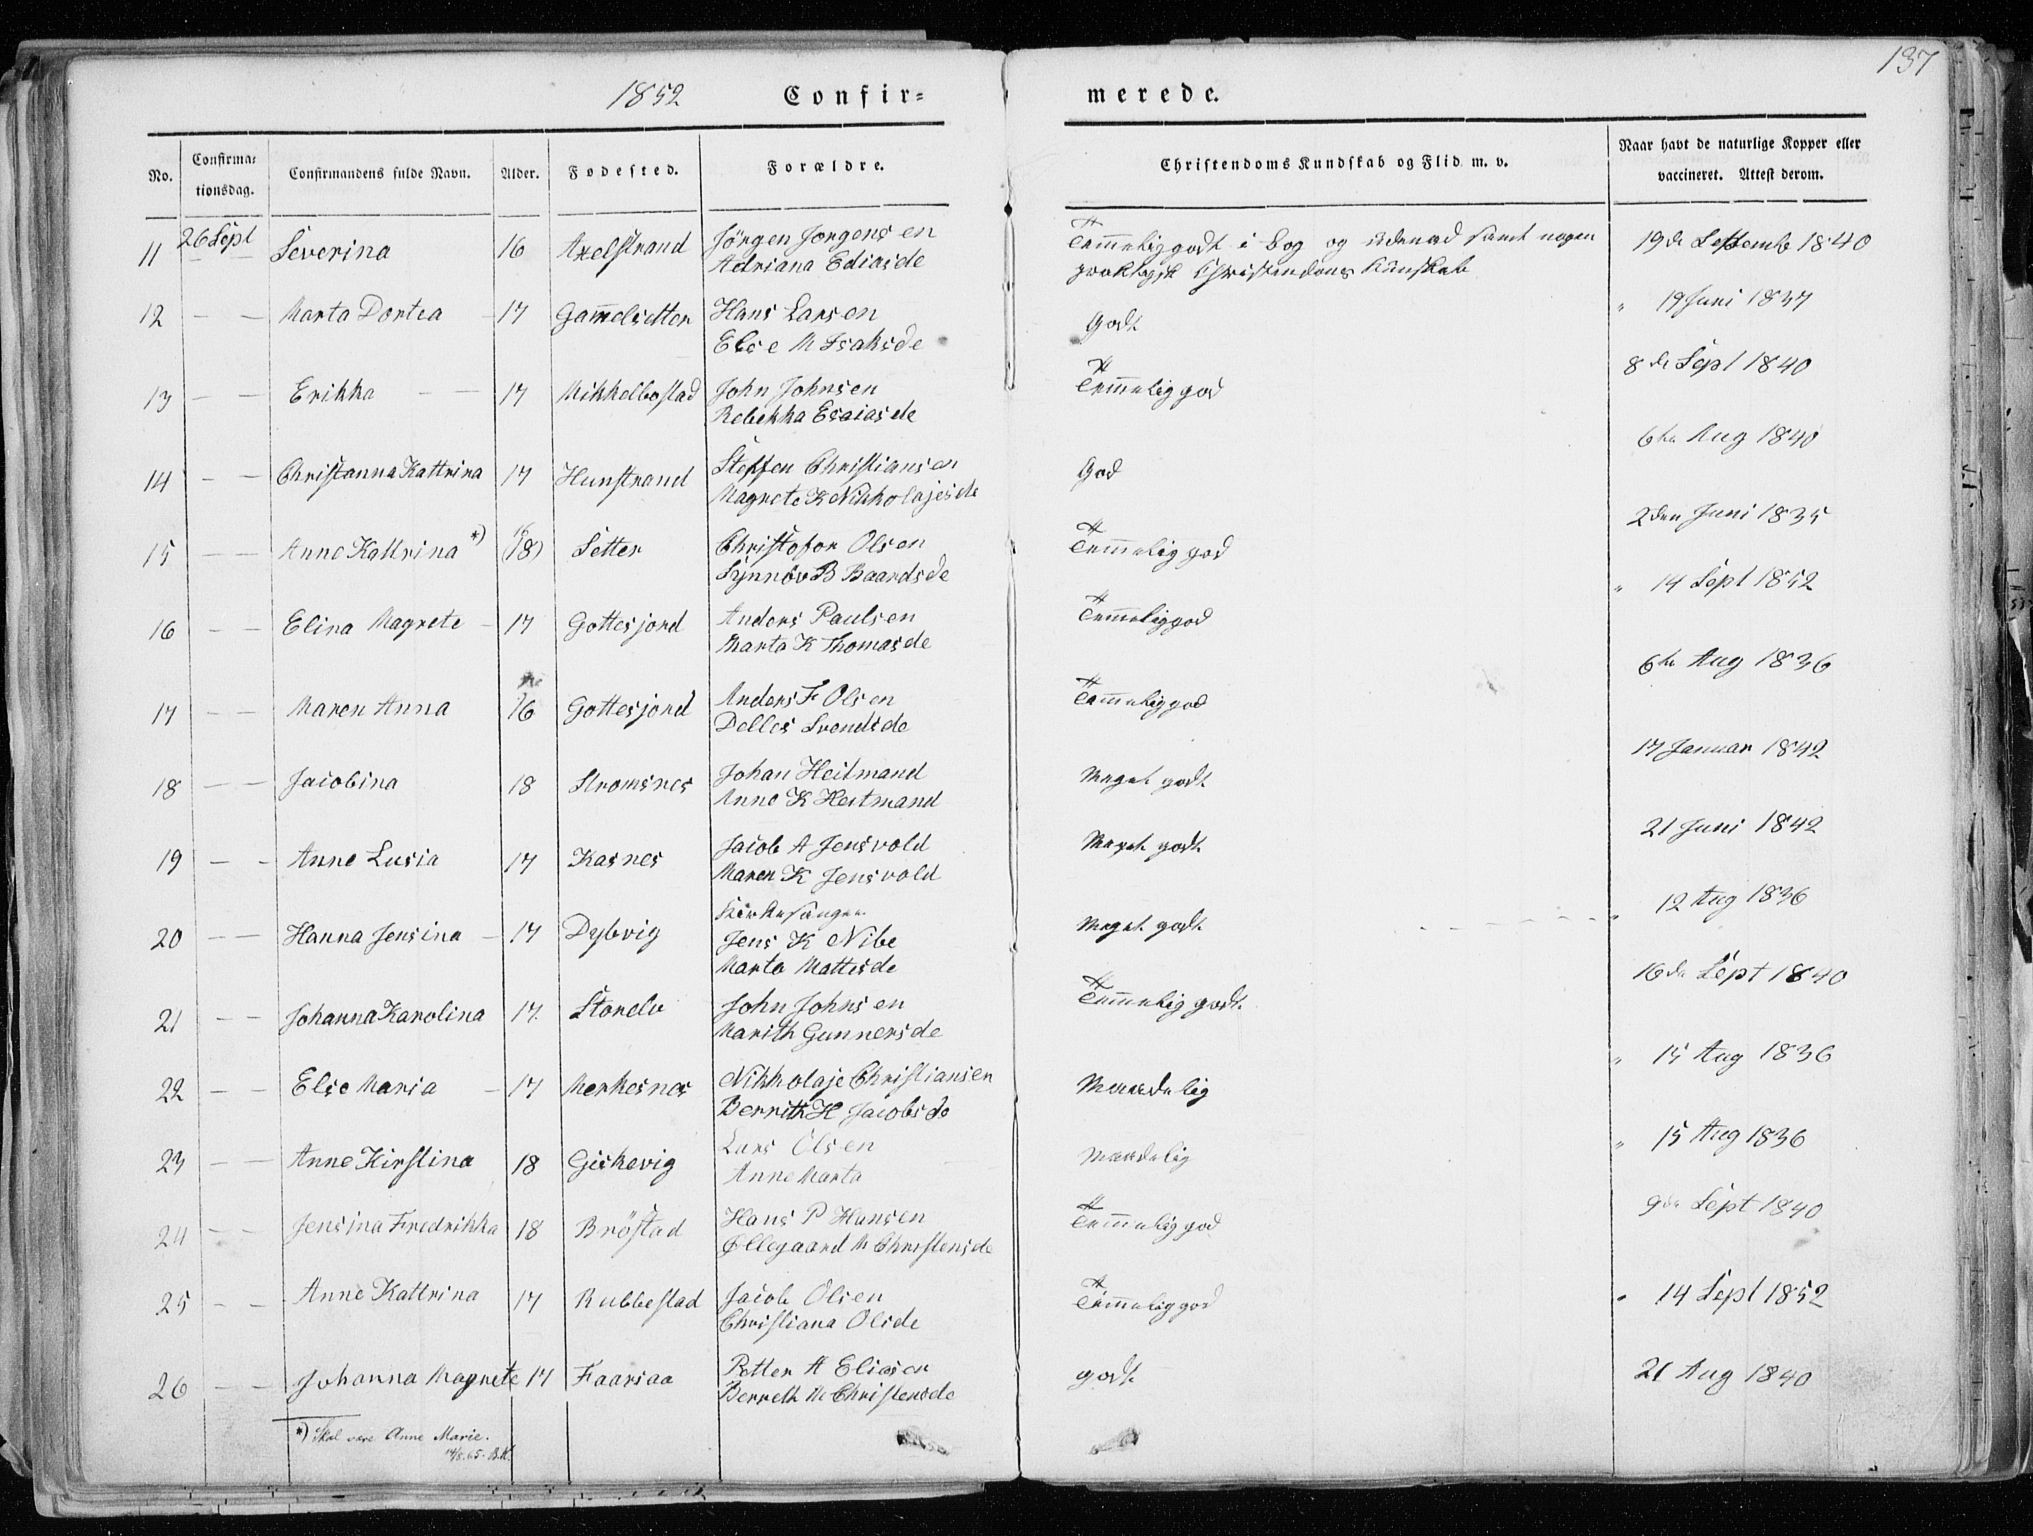 137
1852 Confir= merede.
No. Confirma= tionsdag. Confirmandens fulde Navn. Alder. Fodested. Forældre. Christendoms Kundskab og Flid m. v. Naar havt de naturlige Kopper eller vaccineret. Attest derom.
11 26 Sept Severina 16 Axelstrand Jörgen Jorgensen Temmelig godt i Bog og udenad samt nogen 19de Septembr 1840
Adriana Ediasde praktisk Christendoms Kundskab
12 — — Marta Dortea 17 Gammelsetter Hans Larsen Godt " 19 Juni 1837
Else M Isaksde
13 — — Erikka — — 17 Mikkelbostad John Johnsen Temmelig god 8de Sept 1840
Rebekka Esaiasde
14 — — Christanna Kattrina 17 Hunstrand Steffen Christiansen God 6te Aug 1840
Magrete K Nikkolajesde
15 — — Anne Kattrina *) (18) Setter Christofor Olsen Temmelig god 2den Juni 1835
Synnöv B Baardsde
16 — — Elina Magrete 17 Gottesjord Anders Paulsen Temmelig god " 14 Sept 1852
Marta K Thomasde
17 — — Maren Anna 16 Gottesjord Anders F Olsen Temmelig god 6te Aug 1836
Delles Svendsde
18 — — Jacobina 18 Stromsnes Johan Heitmand Meget godt 17 Januar 1842
Anne K Heitmand
19 — — Anne Lusia 17 Kasnes Jacob A Jensvold Meget godt 21 Juni 1842
Maren K Jensvold
20 — — Hanna Jensina 17 Dybvig Kirkesanger Meget godt " 12 Aug 1836
Jens K Nibe
Marta Mattisde
21 — — Johanna Karolina 17. Storelv John Johnsen Temmelig godt 16de Sept 1840
Marith Gunnersde
22 — — Else Maria 17 Merkesnes Nikkolaje Christiansen Maadelig " 15 Aug 1836
Berrith H Jacobsde
23 — — Anne Kirstina 18 Giskevig Lars Olsen Maadelig " 15 Aug 1836
Anne Marta
24 — — Jensina Fredrikka 18 Bröstad Hans P Hansen Temmelig god 9de Sept 1840
Øllegaard M Christensde
25 — — Anne Kattrina 17 Rubbestad Jacob Olsen Temmelig god " 14 Sept 1852
Christiana Olsde
26 — — Johanna Magrete 17 Faarsaa Petter A Eliasen godt 21 Aug 1840
Berreth M Christensde
*) Skal være Anne Marie.
14/8.65. B.K.